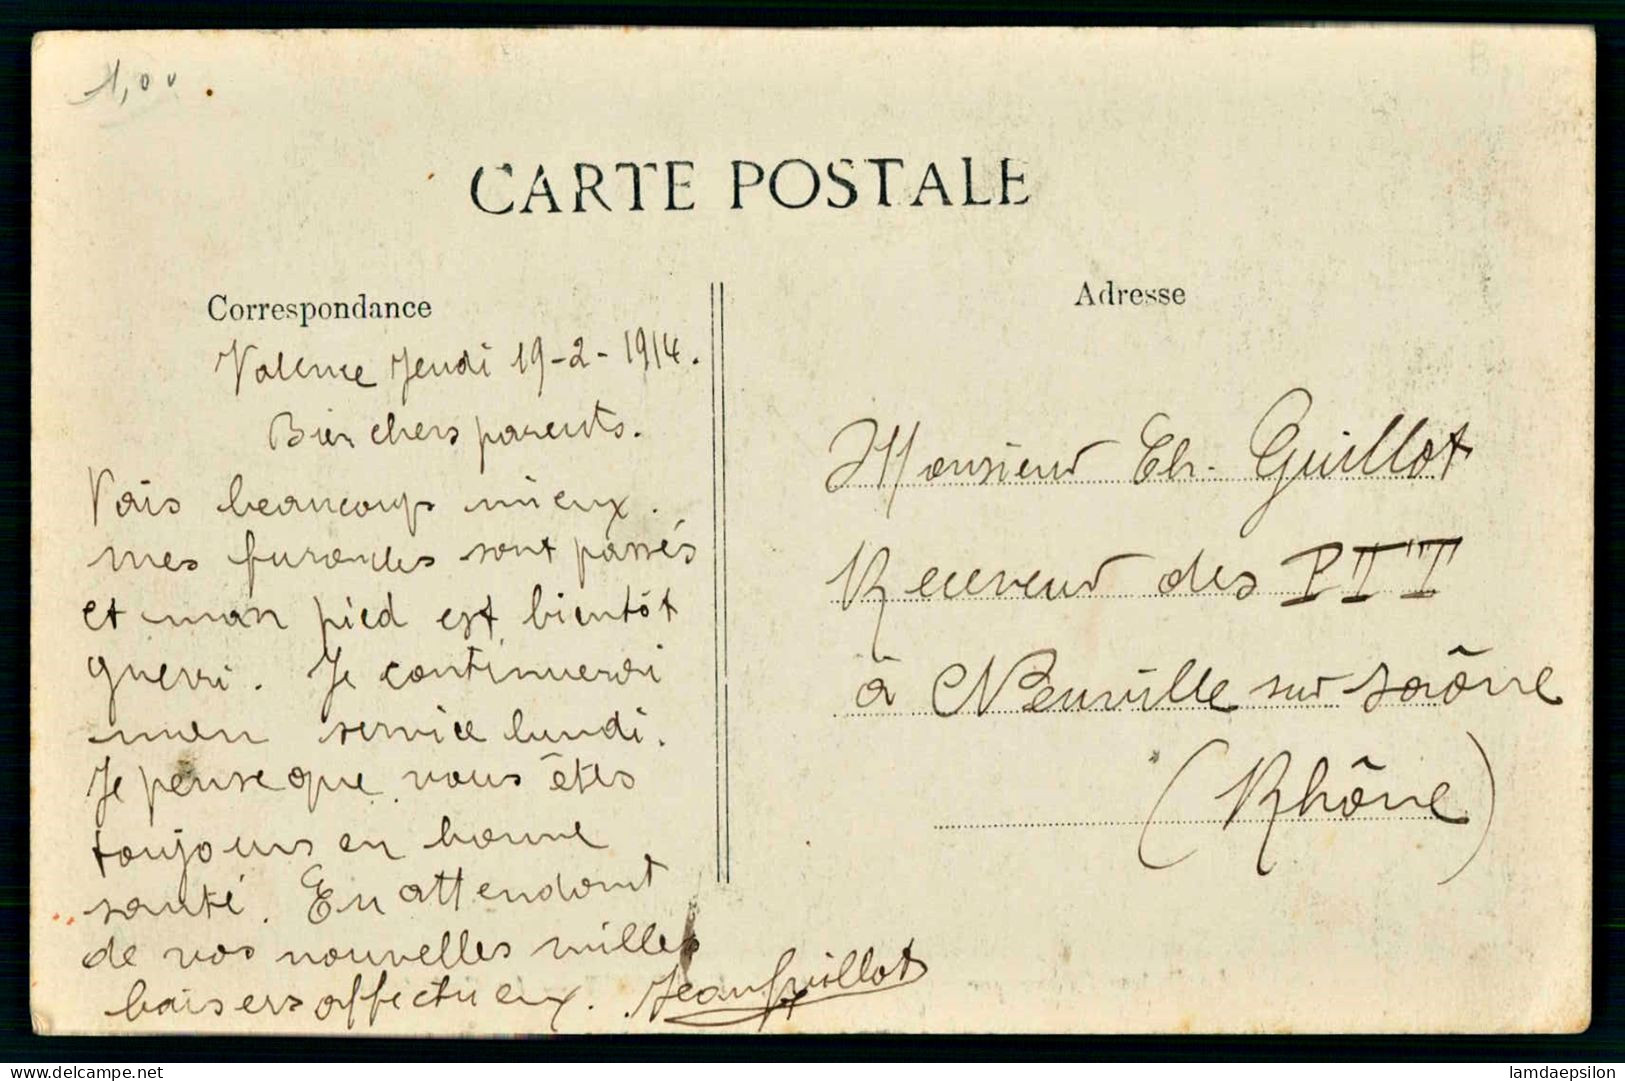 1,00
CARTE POSTALE
Correspondance
Valence Jeudi 19-2-1914.
Bien chers parents.
Vais beaucoup mieux.
mes furoncles sont passés
et mon pied est bientôt
guerri. Je continuerai
mon service lundi.
Je pense que vous êtes
toujours en bonne
santé. En attendant
de vos nouvelles milles
baisers affectueux. Jean Guillot
Adresse
Monsieur Eh. Guillot
Receveur des PTT
à Neuville sur Saône
(Rhône)
delcampe.net
lamdaepsilon